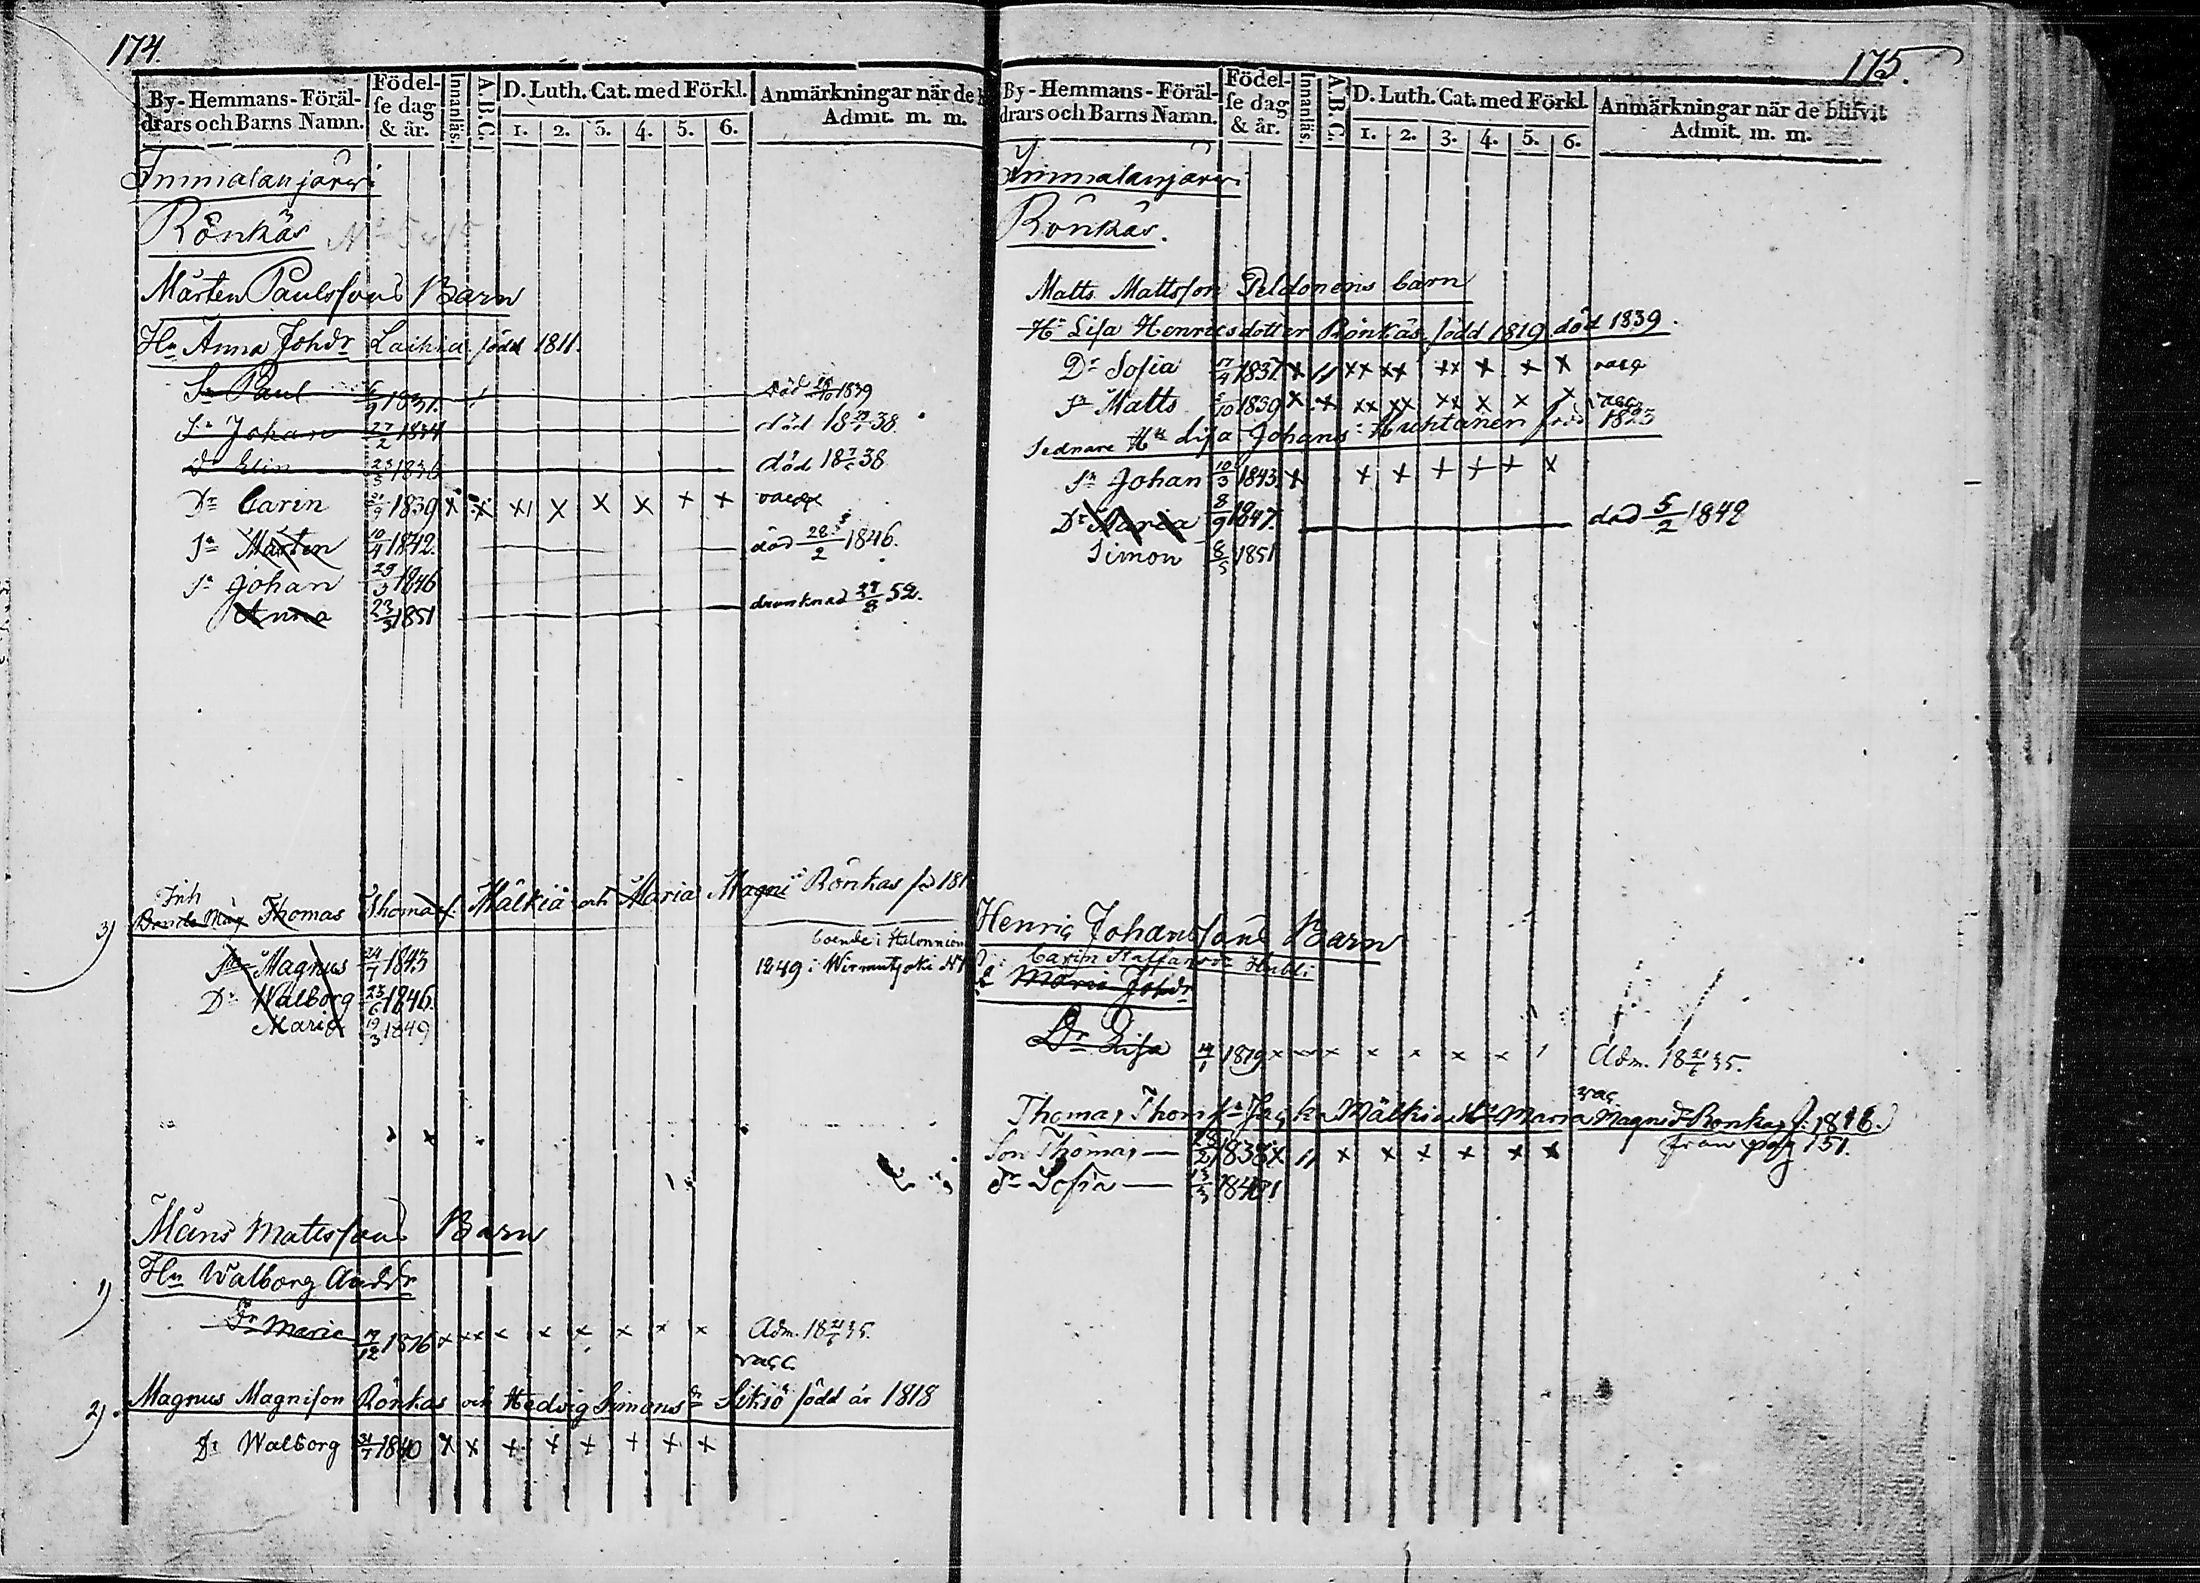 174.
By-Hemmans-Föräl-
drars och Barns Namn.
Födel-
se dag
& år.
Innanläs.
A.B.C.
D. Luth. Cat. med Förkl.
1. 2. 3. 4. 5. 6.
Anmärkningar när de b
Admit. m. m.
Immalanjärwi
Rönkäs
Mårten Paulssons Barn
Hu Anna Johdr Laihia född 1811.
Sn Paul 1831. död 1839
Sn Johan 27/2 1834 död 1838.
Dr Elin 23/3 1836 död 1838
Dr Carin 1839 x x x x x x x x vacc
Sn Mårten 10/4 1842. död 28/2 1846.
Sn Johan 29/3 1846
Anna 23/3 1851 drunknad 27/8 52.
3) Inh Thomas Thomas Mälkiä och Maria Magni Rönkäs 181
boende i
Magnus 24/7 1843 1849 i Wirmutjoki
Dr Walborg 23/6 1846.
Maria 19/3 1849
Måns Mattssons Barn
1) Hu Walborg Andsdr
Dr Maria 1816 x xx x x x x x x Adm. 18 21/6 35.
vacc
2) Magnus Magnison Rönkäs och Hedvig Simonsdr Sikiö född år 1818
Dr Walborg 1840 x x x x x x x x
175.
By-Hemmans-Föräl-
drars och Barns Namn.
Födel-
se dag
& år.
Innanläs.
A.B.C.
D. Luth. Cat. med Förkl.
1. 2. 3. 4. 5. 6.
Anmärkningar när de blifvit
Admit. m. m.
Immalanjärwi
Rönkäs.
Matts Mattsson Peldonens barn
Hu Lisa Henricsdotter Rönkäs född 1819 död 1839.
Dr Sofia 17/4 1837. x 11 xx xx xx x x x vacc
Sn Matts 1839 x x xx xx xx x x x vacc
Sednare Hu Lisa Johans Huhtanen född 1823
Sn Johan 10/3 1843. x x x x x x x
Dr Maria 8/9 1847. död 5/2 1848
Simon 8/5 1851
Henric Johanssons Barn
Carin Staffansdr
Maria Johdr
Dr Lisa 1819 x xx x x x x x 1 Adm. 18 21/6 35.
vac
Thomas Thomss Mälkiä Hu Maria Magnidr Rönkäs f. 1816.
från pag 151.
Son Thomas — 1838 x 11 x x x x x x
Dr Sofia — 1841